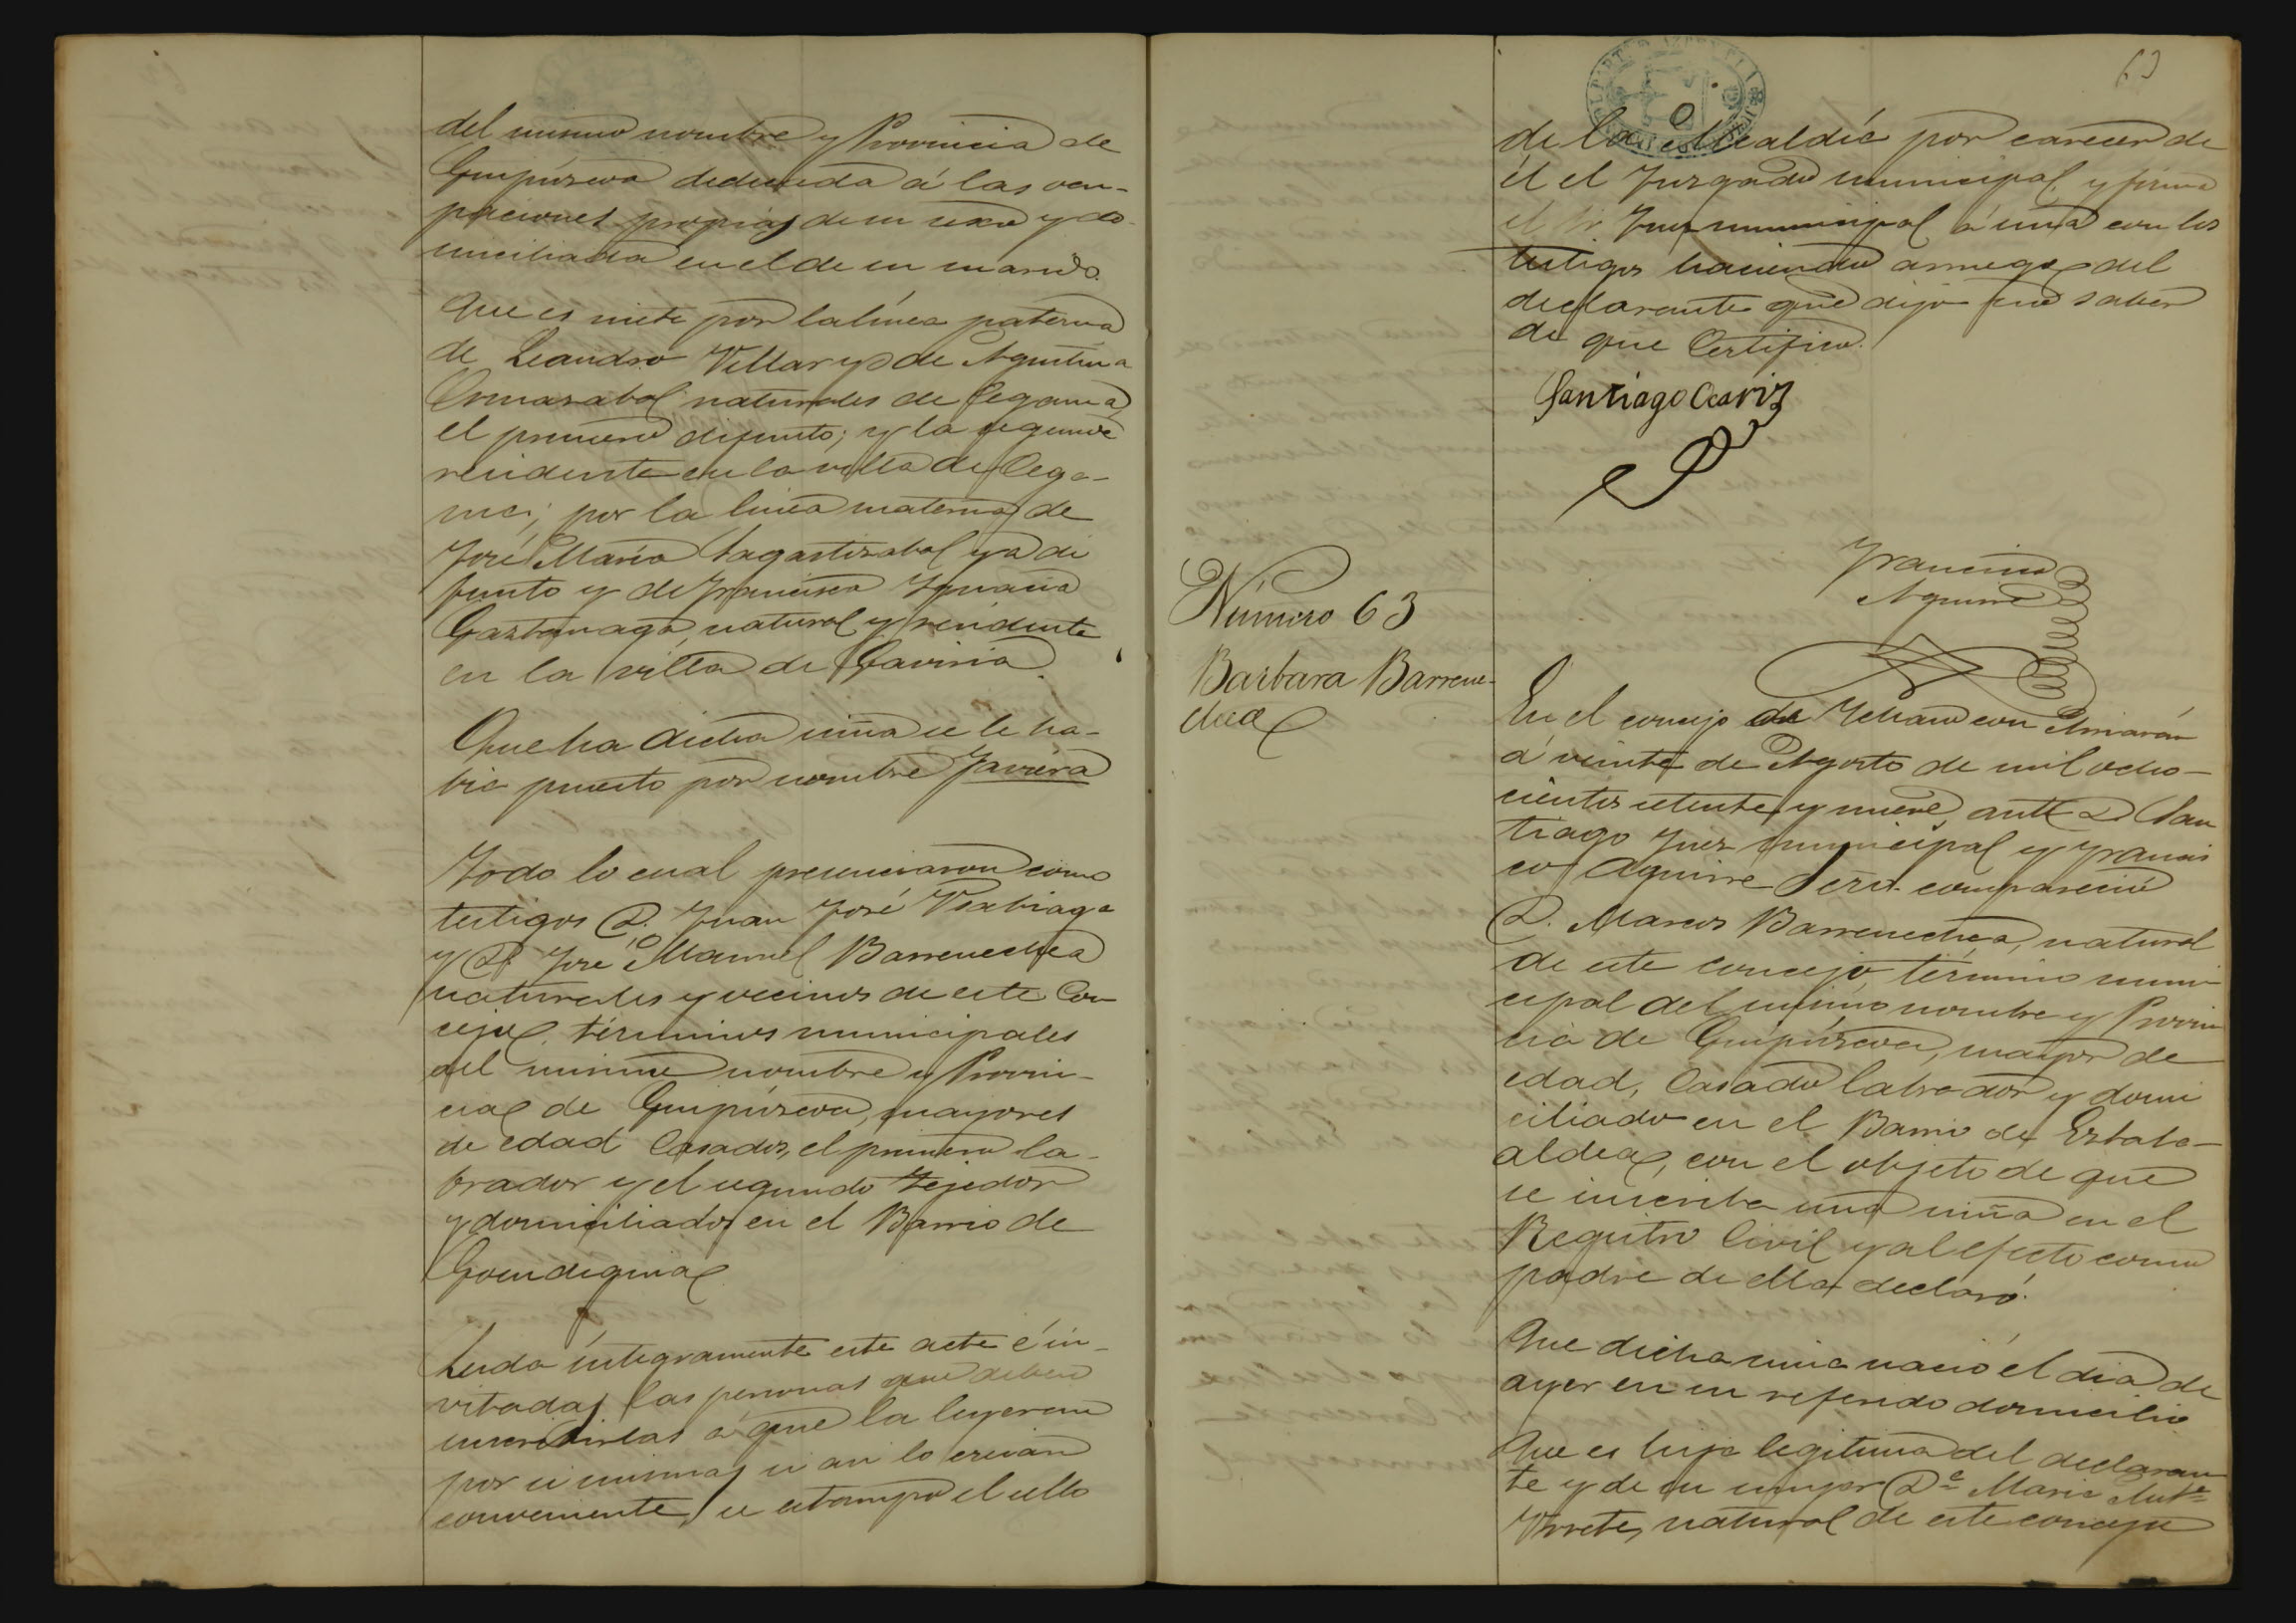 del mismo nombre y Provincia de
Guipúzcoa dedicada á las ocu-
paciones propias de su sexo y do-
miciliada en el de su marido.
Que es nieta por la línea paterna
de Leandro Villar y de Agustina
Ormazabal naturales de Cegama,
el primero difunto; y la segunda
residente en la villa de Cega-
ma; por la línea materna de
José María Sagastizabal ya di
funto y de Francisca Ignacia
Gaztañaga, natural y residente
en la villa de Gaviria.
Que ha dicha niña se le ha-
bia puesto por nombre Javiera
Todo lo cual presenciaron como
testigos D. Juan José
y D. José Manuel Barrenechea
naturales y vecinos de este Con
cejo, términos municipales
del mismo nombre y Provin-
cia de Guipúzcoa, mayores
de edad Casados, el primero la-
brador y el segundo tejedor
y domiciliados en el Barrio de
Leida íntegramente este acta é in-
vitadas las personas que deben
suscribirlas á que la leyeran
por si mismas si asi lo creian
conveniente, se estampó el sello
63
de la Alcaldía por carecer de
él el Juzgado municipal, y firma
el Sr Juez municipal á una con los
testigos haciendo arruego del
declarante que dijo no saber
de que Certifico.
Santiago Ocariz
Francisco
Aguirre
Número 63
Barbara Barrene-
chea
En el concejo de Ichaso con Arriarán
á veinte de Agosto de mil ocho-
cientos setenta y nueve, ante D San
tiago Juez municipal y Francis
co Aguirre Srio. compareció
D. Marcos Barrenechea, natural
de este concejo, término muni-
cipal del mismo nombre y Provin
cia de Guipúzcoa, mayor de
edad, Casado labrador y domi
ciliado en el Barrio de Ezbala-
aldea, con el objeto de que
se inscriba una niña en el
Registro Civil y al efecto como
padre de ella declaró.
Que dicha niña nació el dia de
ayer en su referido domicilio
Que es hija legitima del declaran
te y de su mujer Dª Maria Antª
natural de este concejo